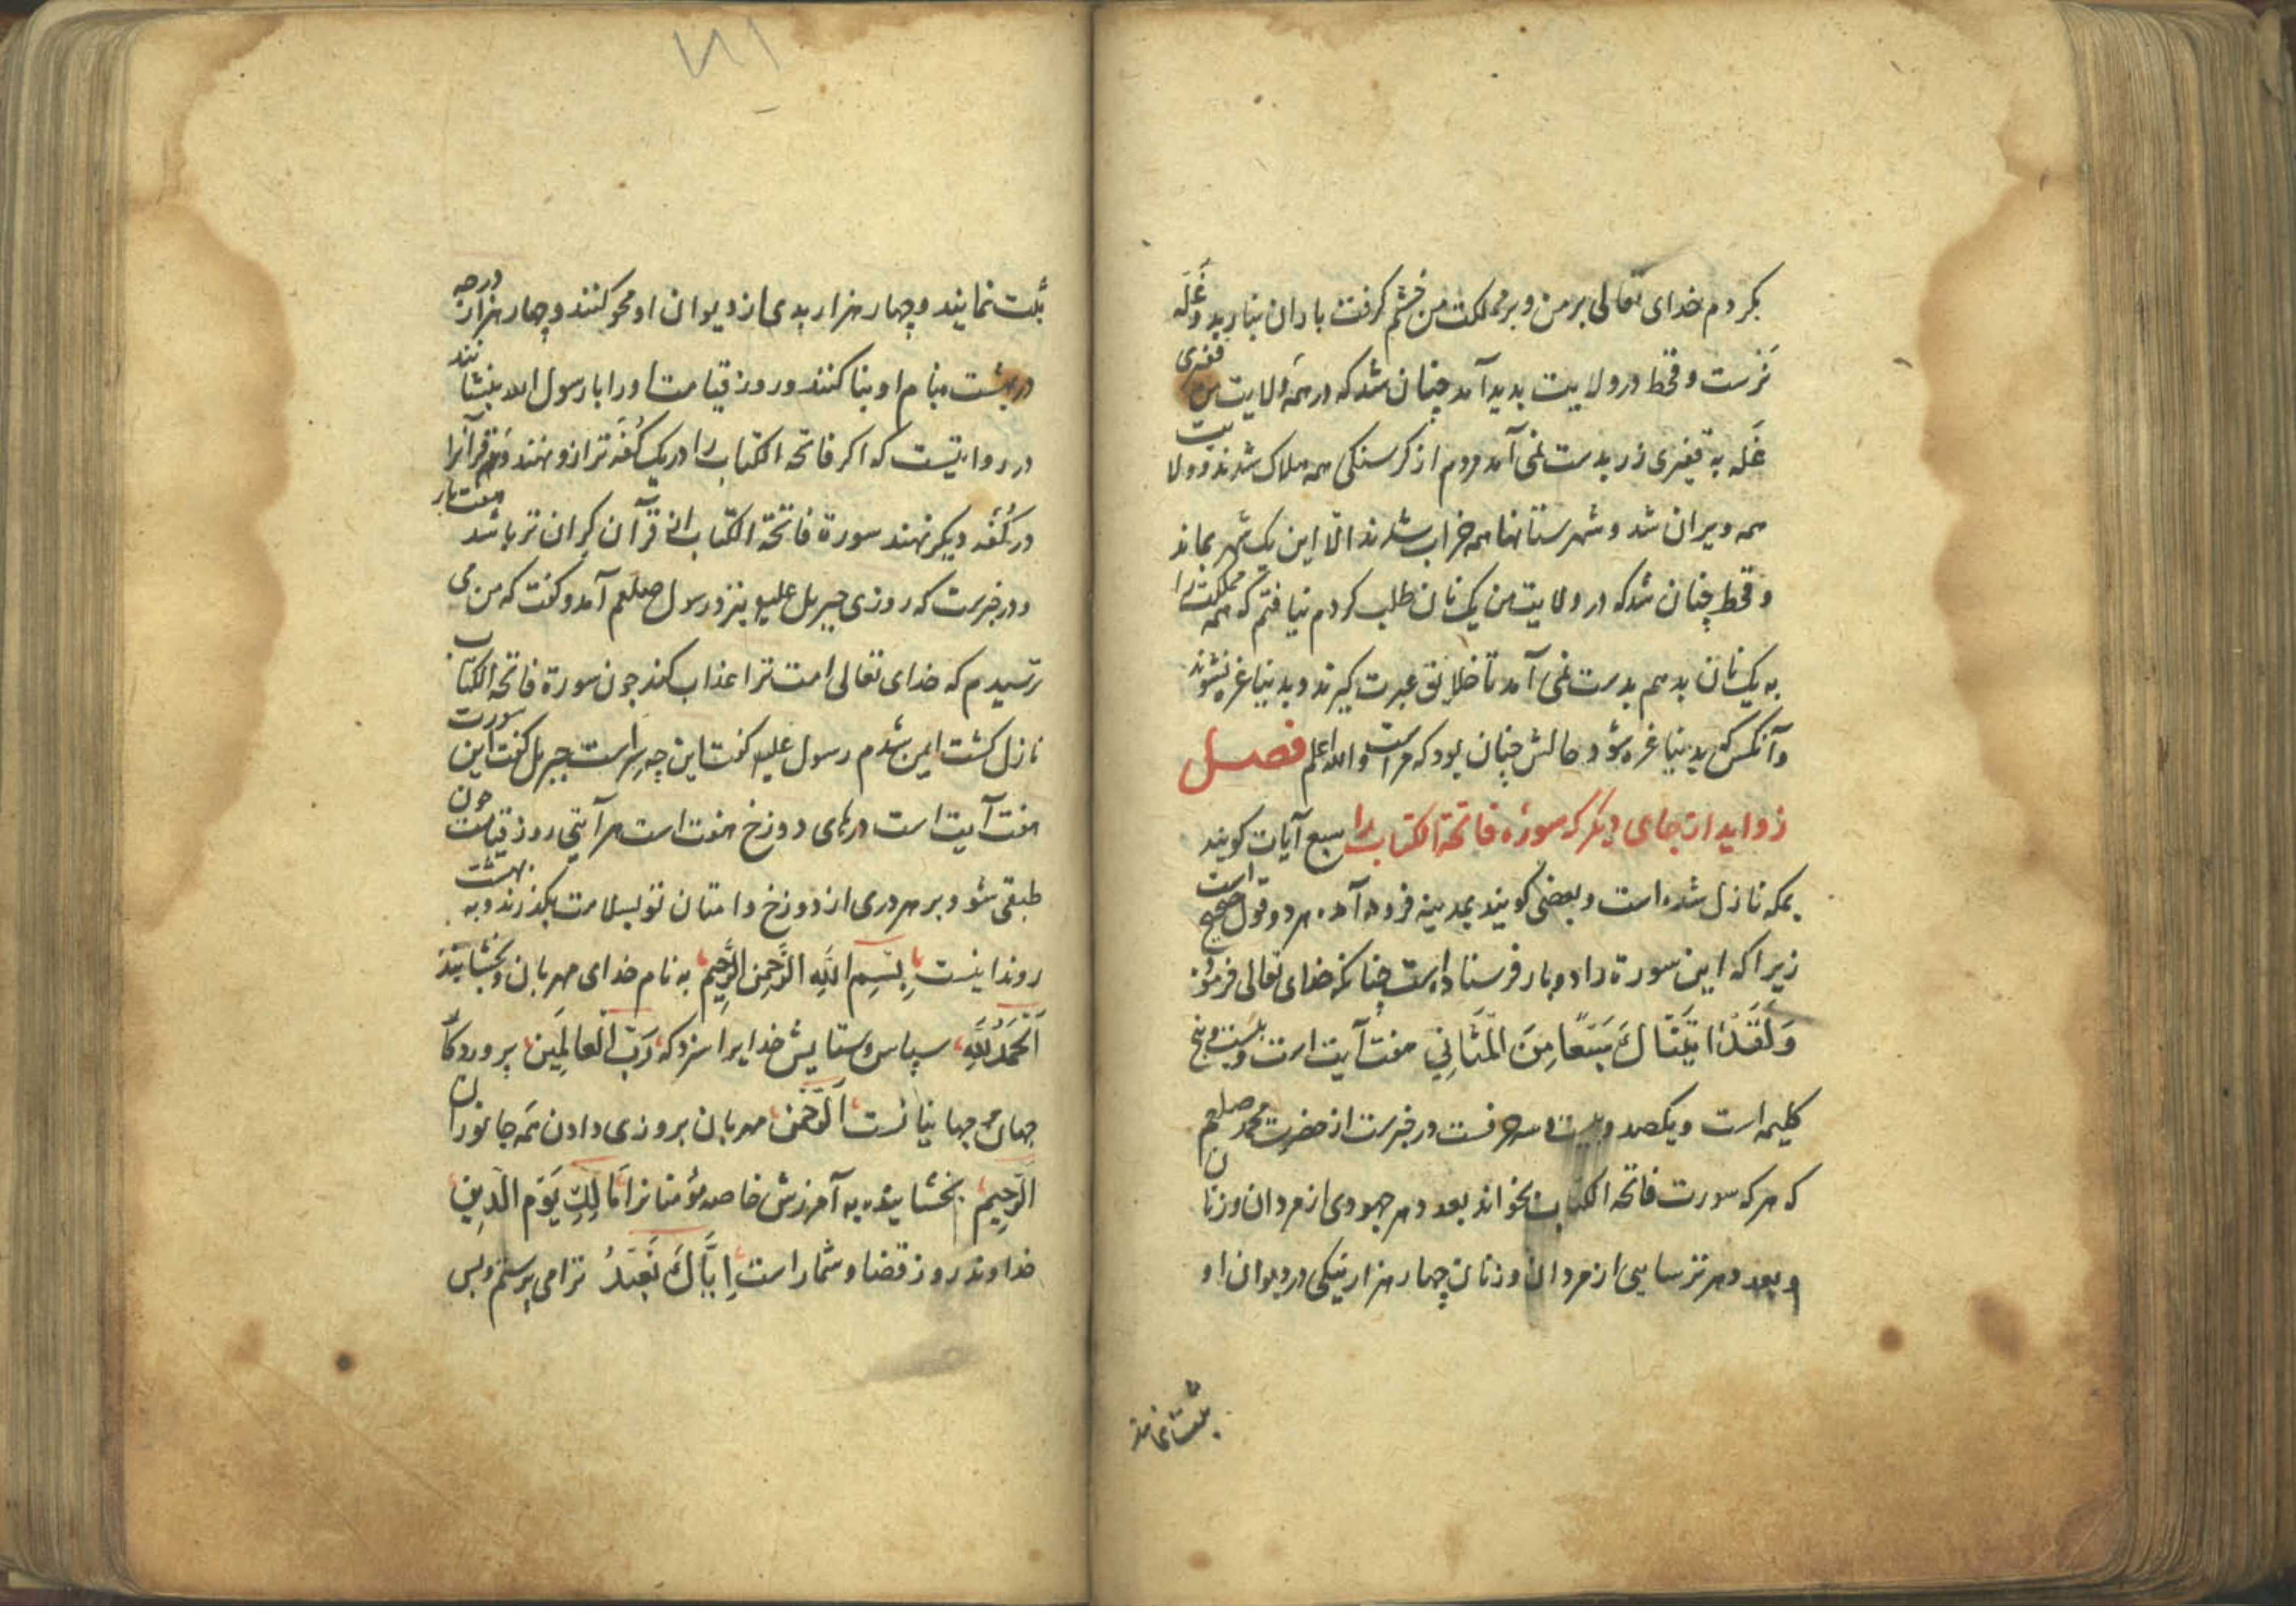 بکردم خدای تعالی بر من و بر مملکت من خشم کرفت باران نبارید و غله
نرست و قحط در ولایت بدید آمد چنان شد که در همه ولایت من قفیزی
غله به قفیزی زر بدست نمی آمد مردم از کرسنکی همه هلاک شدند و ولایت
همه ویران شد و شهرستانها همه خراب شدند الا این یک شهر بماند
و قحط چنان شد که در ولایت من یک نان طلب کردم نیافتم که همه مملکت را
به یک نان بدهم بدست نمی آمد تا خلایق عبرت کیرند و بدنیا غره نشوند
و آنکس که بدنیا غره شود حالش چنان بود که مراست والله اعلم فصل
زواید از جای دیکر که سوره فاتحة الکتاب را سبع آیات کویند
بمکه نازل شده است و بعضی کویند بمدینه فرود آمده هر دو قول صحیح است
زیرا که این سورة را دو بار فرستاده است چنانکه خدای تعالی فرموده
وَلَقَدْ اٰتَیْنَاكَ سَبْعًا مِنَ الْمَثَانِي هفت آیت است و بیست و پنج
کلیمه است و یکصد و بیست و سه حرفست در خبرست از حضرت محمد صلعم
که هر که سورت فاتحه الکتاب بخواند بعدد هر جهودی از مردان و زنان
و بعدد هر ترسایی از مردان و زنان چهار هزار نیکی در دیوان او
ثبت نمایند و چهار هزار بدی از دیوان او محو کنند و چهار هزار درجه
در بهشت بنام او بنا کنند و روز قیامت او را با رسول الله بنشانند
در روایتیست که اکر فاتحه الکتاب را در یک کفه ترازو نهند و همه قرآنرا
در کفه دیکر نهند سورة فاتحة الکتاب از قرآن کران تر باشد هفت بار
و در خبرست که روزی جبریل علیه بنزد رسول صلعم آمد و کفت که من می
ترسیدم که خدای تعالی امت ترا عذاب کند جون سورة فاتحه الکتاب
نازل کشت ایمن شدم رسول علیه کفت این چه سراست جبریل کفت این سورت
هفت آیت است درهای دوزخ هفت است هر آیتی روز قیامت جون
طبقی شود بر هر دری از دوزخ و امتان تو بسلامت بکذرند و به بهشت
روند اینست بِسْمِ اللَّهِ الرَّحْمٰنِ الرَّحِیمِ به نام خدای مهربان و بخشاینده
اَلْحَمْدُ لِلَّهِ سپاس و ستایش خدایرا سزد که رَبِّ الْعَالَمِینَ پروردکار
جهان و جهانیانست اَلرَّحْمٰنِ مهربان بروزی دادن همه جانوران
الرَّحِیمِ بخشاینده به آمرزش خاصه مؤمنانرا مَالِكِ یَوْمِ الدِّینِ
خداوند روز قضا و شمار است إِیَّاكَ نَعْبُدُ ترا می پرستم و بس